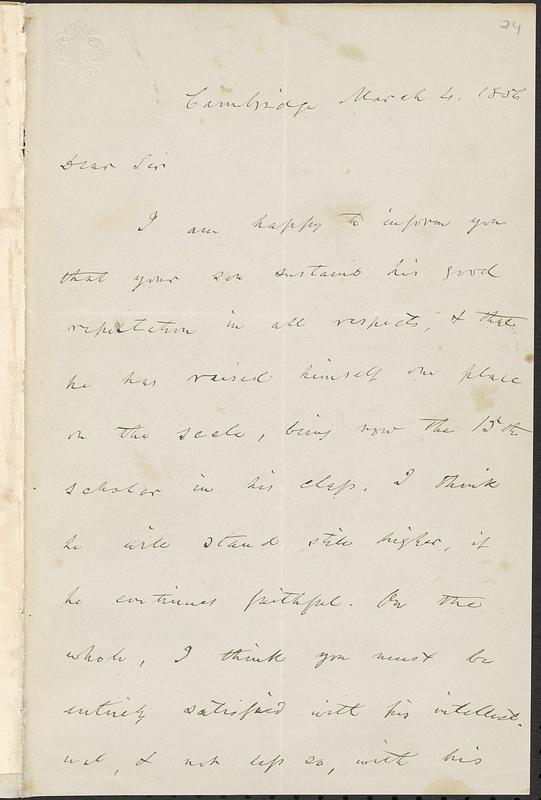 24
Cambridge March 4. 1856
Dear Sir
I am happy to inform you
that your son sustains his good
reputation in all respects, & that
he has raised himself one place
on the scale, being now the 15th
scholar in his class. I think
he will stand still higher, if
he continues faithful. On the
whole, I think you must be
entirely satisfied with his intellect-
ual, & not less so, with his